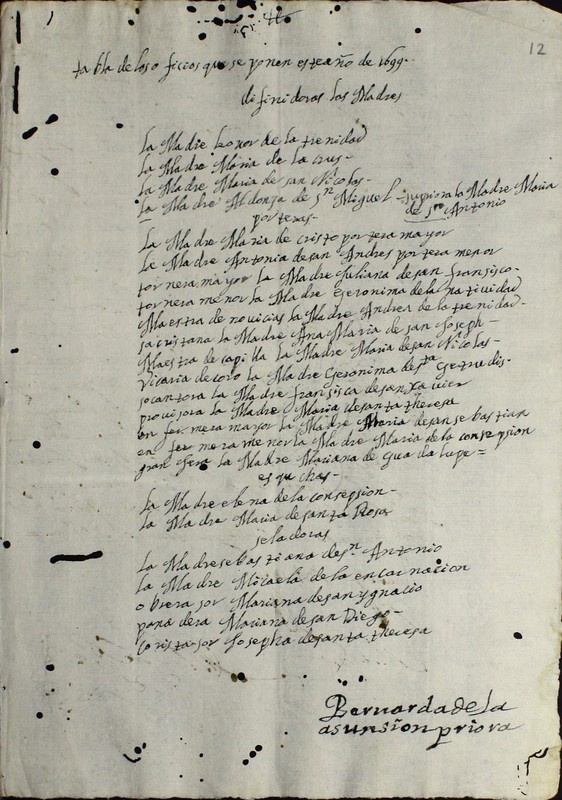 12
tabla de los oficios que se ponen este año de 1699.
difinidoras las Madres
la Madre leonor de la trenidad
la Madre Maria de la crus-
la Madre Maria de san Nicolas-
la Madre Aldonsa de sn Miguel - supriora la Madre Maria
de sn Antonio
porteras-
la Madre Maria de cristo portera mayor
la Madre Antonia de san Andres portera menor
tornera mayor la Madre Juliana de san fransisco-
tornera menor la Madre Geronima de la natividad
Maestra de novicias la Madre Andrea de la trenidad-
sacristana la Madre Ana Maria de san Joseph-
Maestra de capilla la Madre Maria de san Nicolas-
vicaria de coro la Madre Geronima de sta Getrudis-
socantora la Madre fransisca de san xavier
provisora la Madre Maria de santa theresa
enfermera mayor la Madre Maria de san sebastian
enfermera menor la Madre Maria de la consepsion
granera la Madre Mariana de Guadalupe=
esquchas-
la Madre elena de la consepsion-
la Madre Maria de santa Rosa
seladoras
la Madre sebastiana de sn Antonio
la Madre Micaela de la encarnacion
obrera sor Mariana de san ygnacio
panadera Mariana de san Diego-
corista sor Josepha de santa theresa
Bernarda de la
asunsion priora